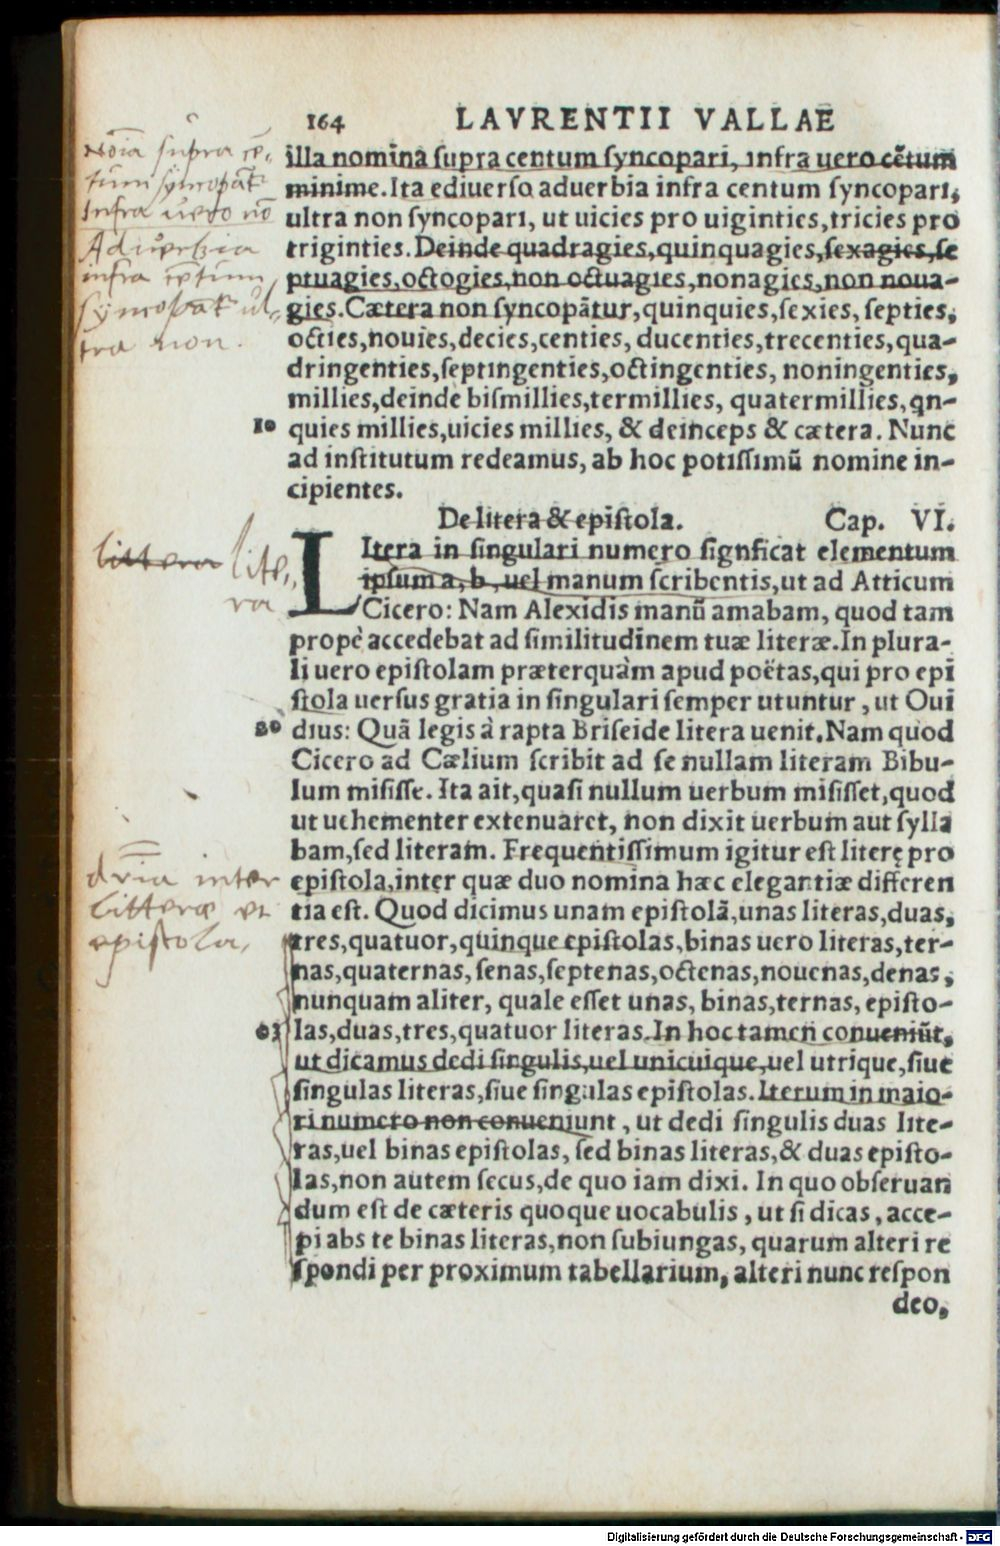 164 LAVRENTII VALLAE
illa nomina supra centum syncopari, infra uero cẽtum
minime. Ita ediuerso aduerbia infra centum syncopari,
ultra non syncopari, ut uicies pro uiginties, tricies pro
triginties. Deinde quadragies, quinquagies, sexagies, se
ptuagies, octogies, non octuagies, nonagies, non noua-
gies. Cætera non syncopãtur, quinquies, sexies, septies,
octies, nouies, decies, centies, ducenties, trecenties, qua-
dringenties, septingenties, octingenties, noningenties,
millies, deinde bismillies, termillies, quatermillies, qn-
10 quies millies, uicies millies, & deinceps & cætera. Nunc
ad institutum redeamus, ab hoc potissimũ nomine in-
cipientes.
De litera & epistola. Cap. VI.
LItera in singulari numero signficat elementum
ipsum a, b, uel manum scribentis, ut ad Atticum
Cicero: Nam Alexidis manũ amabam, quod tam
propè accedebat ad similitudinem tuæ literæ. In plura-
li uero epistolam præterquàm apud poëtas, qui pro epi
stola uersus gratia in singulari semper utuntur, ut Oui
20 dius: Quã legis à rapta Briseide litera uenit. Nam quod
Cicero ad Cælium scribit ad se nullam literam Bibu-
lum misisse. Ita ait, quasi nullum uerbum misisset, quod
ut uehementer extenuaret, non dixit uerbum aut sylla
bam, sed literam. Frequentissimum igitur est literę pro
epistola, inter quæ duo nomina hæc elegantiæ differen
tia est. Quod dicimus unam epistolã, unas literas, duas,
tres, quatuor, quinque epistolas, binas uero literas, ter-
nas, quaternas, senas, septenas, octenas, nouenas, denas,
nunquam aliter, quale esset unas, binas, ternas, episto-
03 las, duas, tres, quatuor literas. In hoc tamen conueniũt,
ut dicamus dedi singulis, uel unicuique, uel utrique, siue
singulas literas, siue singulas epistolas. Iterum in maio-
ri numero non conueniunt, ut dedi singulis duas lite-
ras, uel binas epistolas, sed binas literas, & duas episto-
las, non autem secus, de quo iam dixi. In quo obseruan
dum est de cæteris quoque uocabulis, ut si dicas, acce-
pi abs te binas literas, non subiungas, quarum alteri re
spondi per proximum tabellarium, alteri nunc respon
deo,
Noĩa supra cẽ-
tum syncopãt
Infra uero nõ
Aduerbia
infra cẽtum
syncopãt ul-
tra non.
littera lite-
ra
dr̃ia inter
litteræ et
epistola,
Digitalisierung gefördert durch die Deutsche Forschungsgemeinschaft - DFG